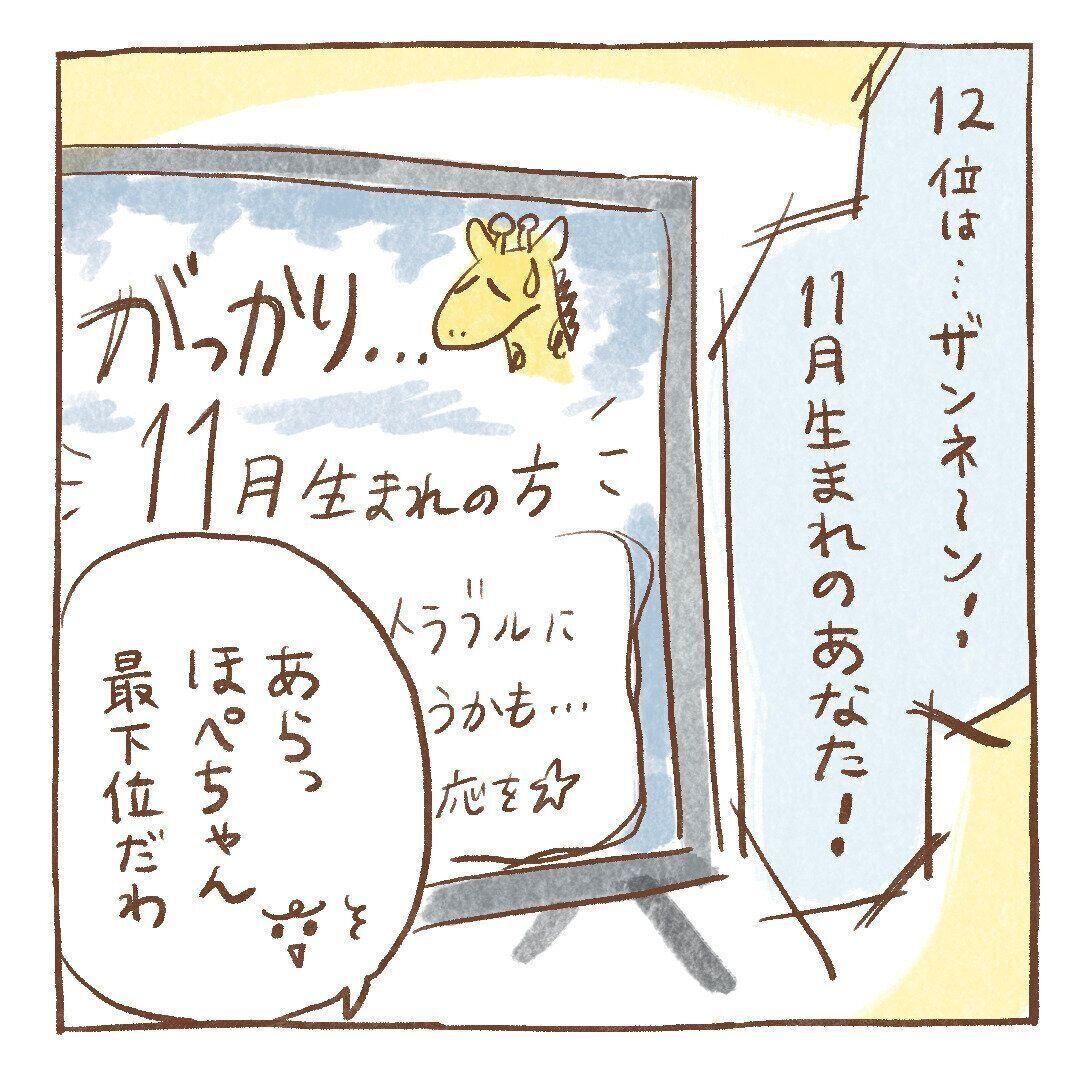 12位は…ザンネ〜ン！
11月生まれのあなた！
がっかり…
11月生まれの方
トラブルに
うかも…
応を☆
あらっ
ほぺちゃん
最下位だわ